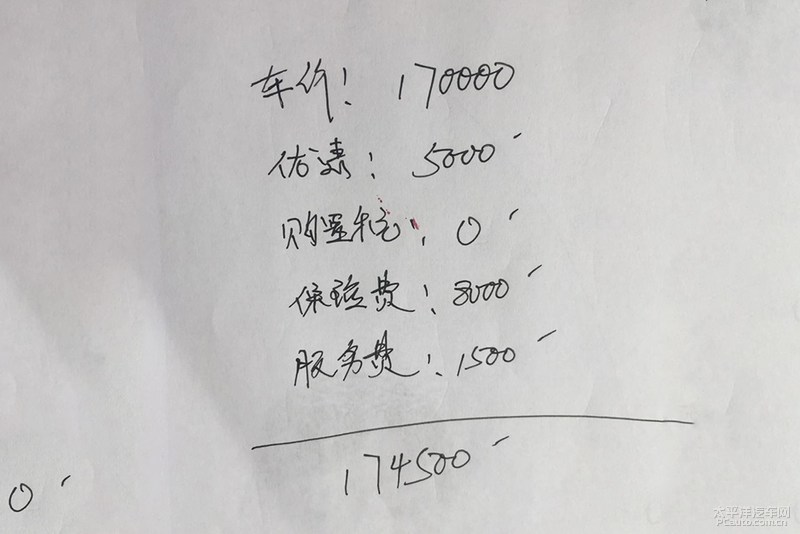 车价: 170000
优惠: 5000
购置税: 0
保险费: 8000
服务费: 1500
174500
0
太平洋汽车网
PCauto.com.cn